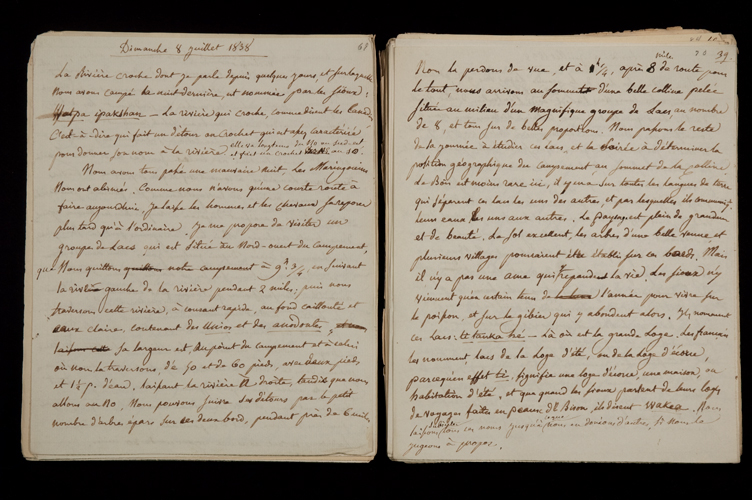 Dimanche 8 juillet 1838
La Rivière croche dont je parle depuis quelques jours, et sur laquelle
Nous avons campé la nuit dernière, est nommée par les Sioux:
Watpa ipakshan — La rivière qui croche, comme disent les Canad.
C'est-à-dire qui fait un détour, un crochet qui est assez caractérisé
pour donner son nom à la rivière.
et fait un crochet
Nous avons tous passé une mauvaise nuit. Les Maringouins
Nous ont abimés. Comme nous n'avons qu'une courte route à
faire aujourd'hui. Je laisse les hommes, et les chevaux se reposer
plus tard qu'à l'ordinaire. Je me propose de visiter un
groupe de Lacs qui est situé au Nord-ouest du campement,
Nous quittons notre campement à 9h 3/4 en suivant
la rive gauche de la rivière pendant 2 miles; puis nous
traversons cette rivière, à courant rapide, au fond caillouté et
eaux claires, contenant des Unios et des anodontes,
Sa largeur est, au point du campement et à celui
où nous la traversons de 50 pieds et de 60 pieds, avec deux pieds
et 1½ p. d'eau, laissant la rivière à droite, tandis que nous
allons au NO. Nous pouvons suivre ses détours par le petit
nombre d'arbres épars sur ses deux bords, pendant près de 6 miles
39
Nous la perdons de vue, et à 1h 1/4, après 8 miles de route pour
le tout, nous arrivons au sommet d'une belle colline pelée
située au milieu d'un magnifique groupe de Lacs au nombre
de 8, et tous sur de belles proportions. Nous passons le reste
de la journée à étudier ces lacs, et la soirée à déterminer la
position géographique du campement au sommet de la colline
Le Bois est moins rare ici, il y en a sur toutes les langues de terre
qui séparent ces lacs les uns des autres, et par lesquelles ils communiq.
leurs eaux les uns aux autres. Le paysage est plein de grandeur
et de beauté. Le sol excellent, les arbres d'une belle venue, et
plusieurs villages pourraient être établis sur ces bords. Mais
il n'y a pas une ame qui répande la vie. Les sioux n'y
viennent qu'en certain tems de l'année pour vivre sur
le poisson, et sur le gibier qui y abondent alors. Ils nomment
ces Lacs: titanka hé — Là où est la grande Loge. Les français
les nomment Lacs de la Loge d'été, ou de la Loge d'écorce,
parcequ'en effet ti, signifie une loge d'écorce, une maison, ou
habitation d'été, et que quand les sioux parlent de leurs loges
de voyages faites en peaux de Bison, ils disent wakea. Nous
laissons
jugeons à propos.